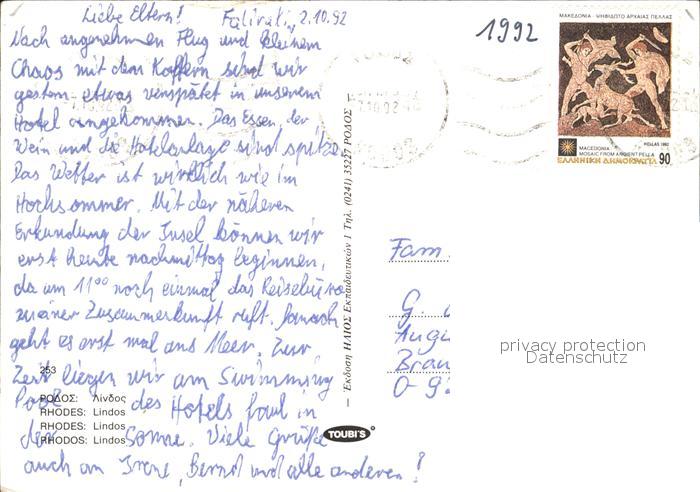 Liebe Eltern! Faliraki, 2.10.92
Nach angenehmen Flug und kleinem
Chaos mit dem Koffern sind wir
gestern etwas verspätet in unserem
Hotel angekommen. Das Essen, der
Wein und die Hotelanlage sind spitze.
Das Wetter ist wirklich wie im
Hochsommer. Mit der näheren
Erkundung der Insel können wir
erst heute nachmittag beginnen,
da um 11⁰⁰ noch einmal das Reisebüro
zu einer Zusammenkunft ruft. Danach
geht es erst mal ans Meer. Zur
Zeit liegen wir am Swimming
Pool des Hotels faul in
der Sonne. Viele Grüße
auch an Irene, Bernd und alle anderen!
253
ΡΟΔΟΣ: Λίνδος
RHODES: Lindos
RHODES: Lindos
RHODOS: Lindos
Έκδοση ΗΛΙΟΣ Εκπαιδευτικών 1 Τηλ. (0241) 35227 ΡΟΔΟΣ
TOUBI'S
1992
ΜΑΚΕΔΟΝΙΑ - ΨΗΦΙΔΩΤΟ ΑΡΧΑΙΑΣ ΠΕΛΛΑΣ
HELLAS 1992
MACEDONIA
MOSAIC FROM ANCIENT PELLA
90
ΕΛΛΗΝΙΚΗ ΔΗΜΟΚΡΑΤΙΑ
Fam.
G.
Augu
Brau
O-9
privacy protection
Datenschutz